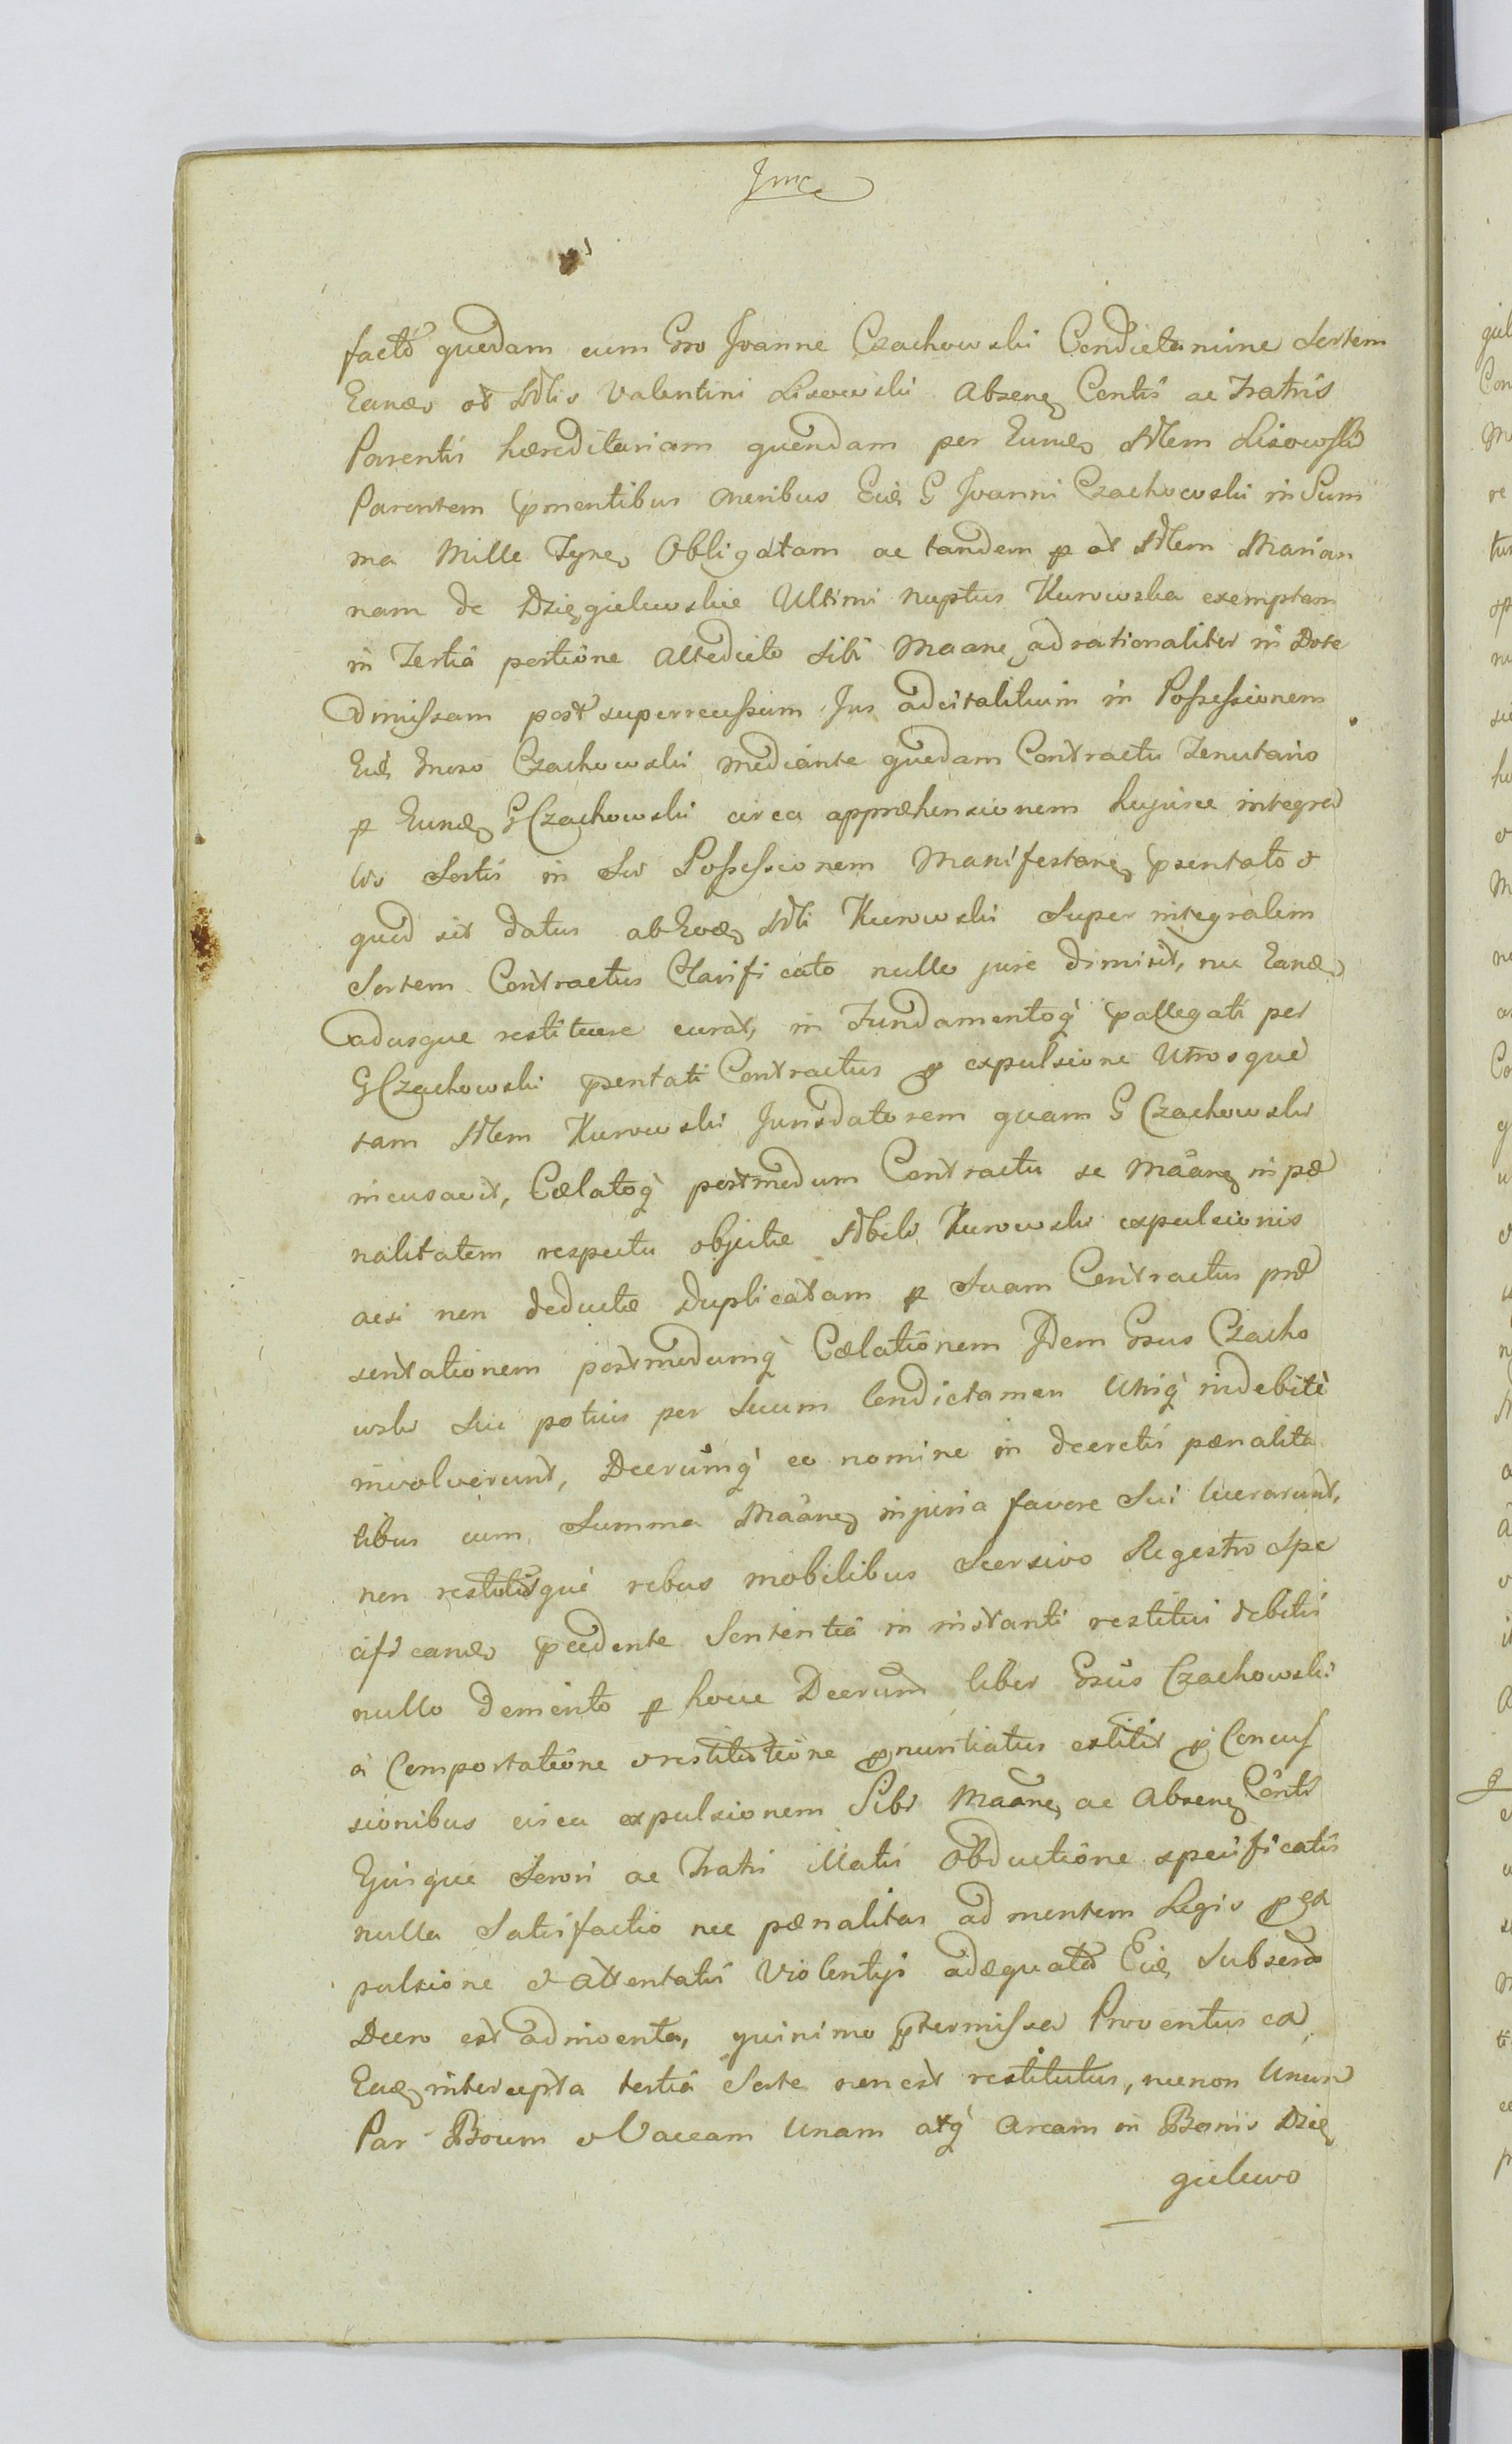 Jmc
facto quodam cum Gro Joanne Czachowski Condictamine Sortem
Eandẽ et Nblis Valentini Lisowski Absenẽ Contis ac Fratris
Parentis hæreditariam quondam per Eundẽ Nblem Lisowski
Parentem pmentibus oneribus Eid G Joanni Czachowski in Sum
ma Mille Tynf obligatam ac tandem p et Nblem Marian
nam de Dzięgielewskie Ultimi nuptus Kurowska exemptam
in Tertia portione Altedicto Sibi Maane ad rationaliter in Dote
dmissam post superrecussum Jus advitalitium in Possessionem
Eid Gnoso Czachowski mediante quodam Contractu Tenutario
p Eundẽ G Czachowski circa appræhensionem hujusce integra
lis Sortis in Sui Possessionem Manifestanẽ psentato et
quod sit datus ab Eodẽ Nbli Kurowski Super integralem
Sortem Contractus Clarificato nullo jure dimisit, nec Eandẽ
adusque restituere curat, in Fundamentoq pallegati per
G Czachowski psentati Contractus p expulsione Utrosque
tam Nblem Kurowski Jurisdatorem quam G Czachowski
incusavit, Cælatoq postmodum Contractu se Maanẽ in pæ
nalitatem respectu objectæ Nobili Kurowski expulsionis
acsi non deductæ duplicatam p Suam Contractus præ
sentationem postmodumq Cælationem Idem Gsus Czacho
wski Sui potius per Suum Condictamen Utriq indebitè
involverunt, Decrumq eo nomine in decretis pænalita
tibus cum Summa Maanẽ injuria favore Sui lucrarunt,
non restitutisque rebus mobilibus Seorsivo Regestro Spe
cificandis pcedente Sententiâ in instanti restitui debitis
nullo demerito p hocce Decrum liber Gsus Czachowski
à Comportatione et restitutione pnuntiatus extitit p Concus
sionibus circa expulsionem Sibi Maane ac Absenẽ Conti
Ejusque Servi ac Fratri illatis obductione specificatis
nulla Satisfactio nec pænalitas ad mentem Legis p ex
pulsione et attentatis Violentijs adæquata Eid Subseno
Decro est adinventa, quinimo ptermissa Proventus ex
Eadẽ intercepta tertiâ Sorte non est restitutus, necnon Unum
Par Boum et Vaccam Unam atq Arcam in Bonis Dzię
gielewo